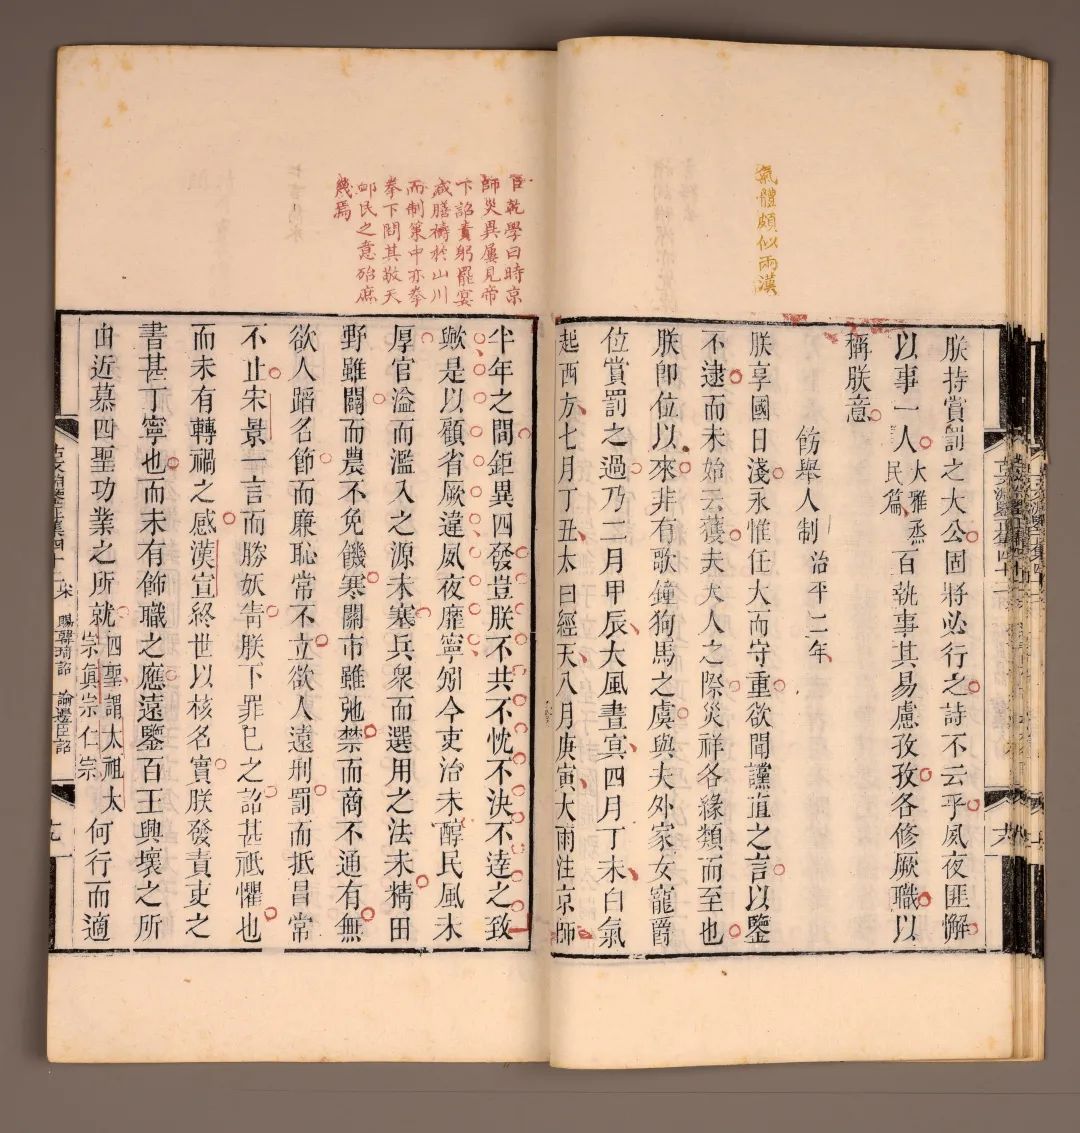 氣體頗似兩漢
朕持賞罰之大公固將必行之詩不云乎夙夜匪解
以事一人大雅烝民篇百執事其易慮孜孜各修厥職以
稱朕意
飭舉人制治平二年
朕享國日淺永惟任大而守重欲聞讜直之言以鑒
不逮而未始云蒦夫天人之際災祥各緣類而至也
朕即位以來非有歌鐘狗馬之虞與夫外家女寵爵
位賞罰之過乃二月甲辰大風晝㝠四月丁未白氣
起西方七月丁丑太白經天八月庚寅大雨注京師
臣乾學曰時京
師災異屢見帝
下詔責躬罷宴
減膳禱於山川
而制策中亦拳
拳下問其敬天
卹民之意殆庶
幾焉
半年之間鉅異四發豈朕不共不忱不決不逹之致
歟是以顧省厥違夙夜靡寧矧今吏治未醇民風未
厚官溢而濫入之源未塞兵衆而選用之法未精田
野雖闢而農不免饑寒關市雖弛禁而商不通有無
欲人蹈名節而廉恥常不立欲人遠刑罰而抵冒常
不止宋景一言而勝妖眚朕下罪已之詔甚祗懼也
而未有轉禍之感漢宣終世以核名實朕發責吏之
書甚丁寧也而未有飾職之應遠鑒百王興壞之所
由近慕四聖功業之所就四聖謂太祖太宗真宗仁宗何行而適
賜韓琦詔 諭邊臣詔